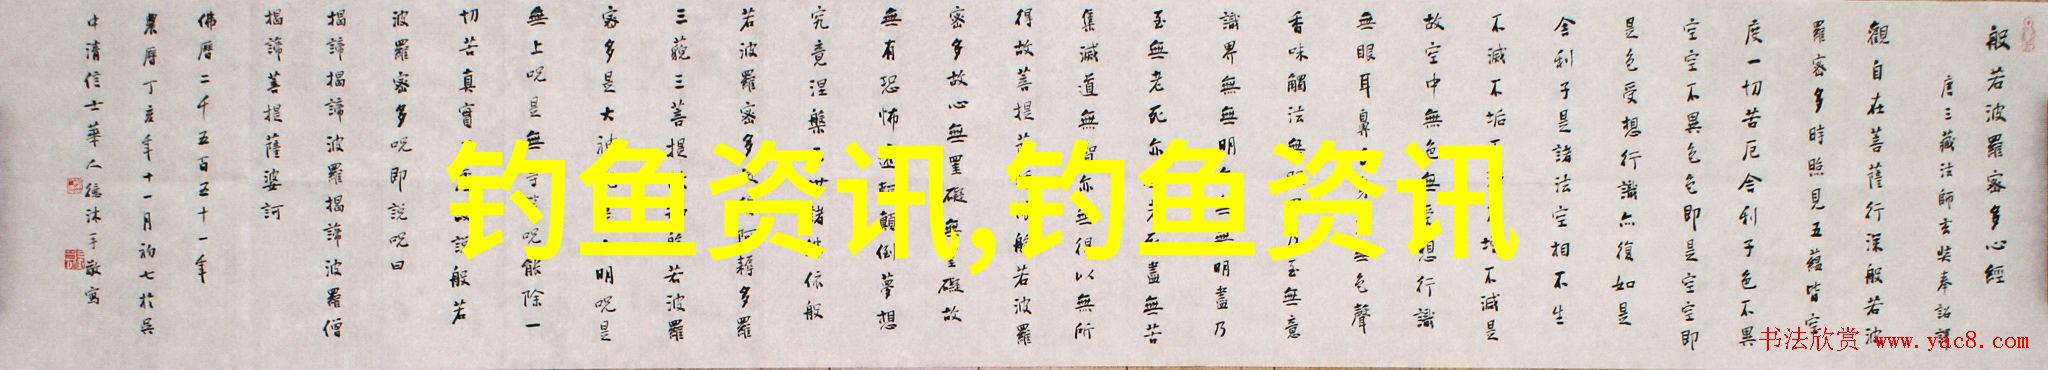 般若波羅蜜多心經
唐三藏法師玄奘奉詔譯
觀自在菩薩行深般若波
羅蜜多時照見五蘊皆空
度一切苦厄舍利子色不異
空空不異色色即是空空即
是色受想行識亦復如是
舍利子是諸法空相不生
不滅不垢不增不減是
故空中無色無受想行識
無眼耳鼻無色聲
香味觸法無乃至無意
識界無無明無明盡乃
至無老死亦無老死盡無苦
集滅道無智亦無得以無所
得故菩提薩般若波羅
蜜多故心無罣礙無罣礙故
無有恐怖遠離顛倒夢想
究竟涅槃三世諸佛依般
若波羅蜜多阿耨多羅
三藐三菩提般若波羅
蜜多是大神明咒是
無上咒是無等咒能除一
切苦真實故說般若
波羅蜜多咒即說咒曰
揭諦揭諦波羅揭諦波羅僧
揭諦菩提薩婆訶
佛曆二千五百五十一年
農曆丁亥年十一月初七於吳
中清信士華人德沐手敬寫
钓鱼资讯,钓鱼资讯
书法欣赏 www.yac8.com